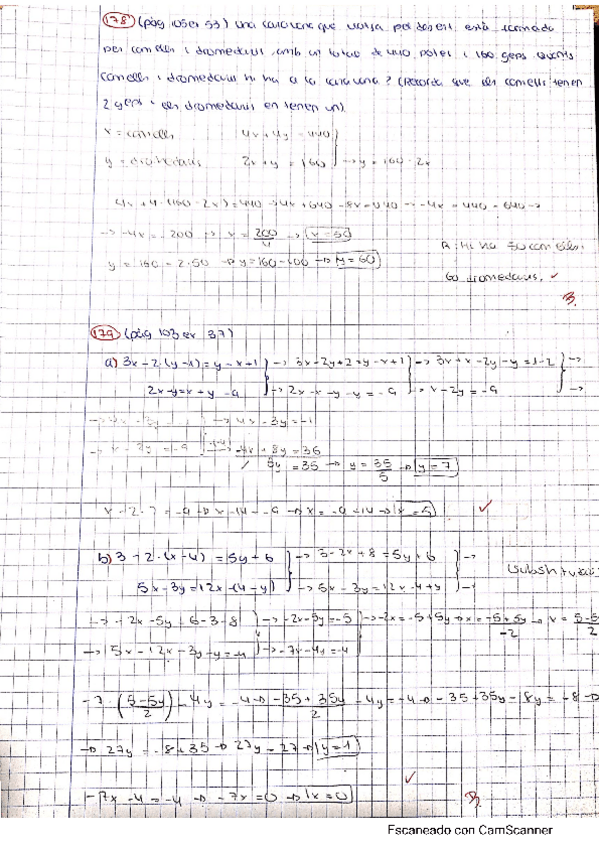 178 (pàg 105 ex 53) Una caravana que per desert està formada
per camells i dromedaris, amb un total de 440 potes i 160 geps. Quants
camells i dromedaris hi ha a la caravana? (Recorda que els camells tenen
2 geps i els dromedaris en tenen un).
x = camells 4x+4y = 440
y = dromedaris 2x+y = 160 → y = 160-2x
4x + 4·(160-2x) = 440 → 4x + 640 - 8x = 440 → -4x = 440 - 640 →
→ -4x = -200 → x = 200/4 → x = 50
R: Hi ha 50 camells i
y = 160 - 2·50 → y = 160-100 → y = 60
60 dromedaris. ✓
179 (pàg 103 ex 37)
a) 3x-2·(y-1) = y-x+1 → 3x-2y+2 = y-x+1 → 3x+x-2y-y = 1-2 →
2x-y = x+y-9 → 2x-x-y-y = -9 → x-2y = -9 →
→ 4x-3y = -1 → 4x-3y = -1
→ x-2y = -9 → -4x+8y = 36
5y = 35 → y = 35/5 → y = 7
x-2·7 = -9 → x-14 = -9 → x = -9+14 → x = 5 ✓
b) 3-2·(x-4) = 5y+6 → 3-2x+8 = 5y+6 →
5x-3y = 12x-(4-y) → 5x-3y = 12x-4+y →
→ -2x-5y = 6-3-8 → -2x-5y = -5 → -2x = -5+5y → x = -5+5y/-2 → x = 5-5y/2
→ 5x-12x-3y-y = -4 → -7x-4y = -4
-7·(5-5y/2) - 4y = -4 → -35+35y/2 - 4y = -4 → -35+35y-8y = -8 →
→ 27y = -8+35 → 27y = 27 → y = 1
✓
-7x-4 = -4 → -7x = 0 → x = 0
Escaneado con CamScanner